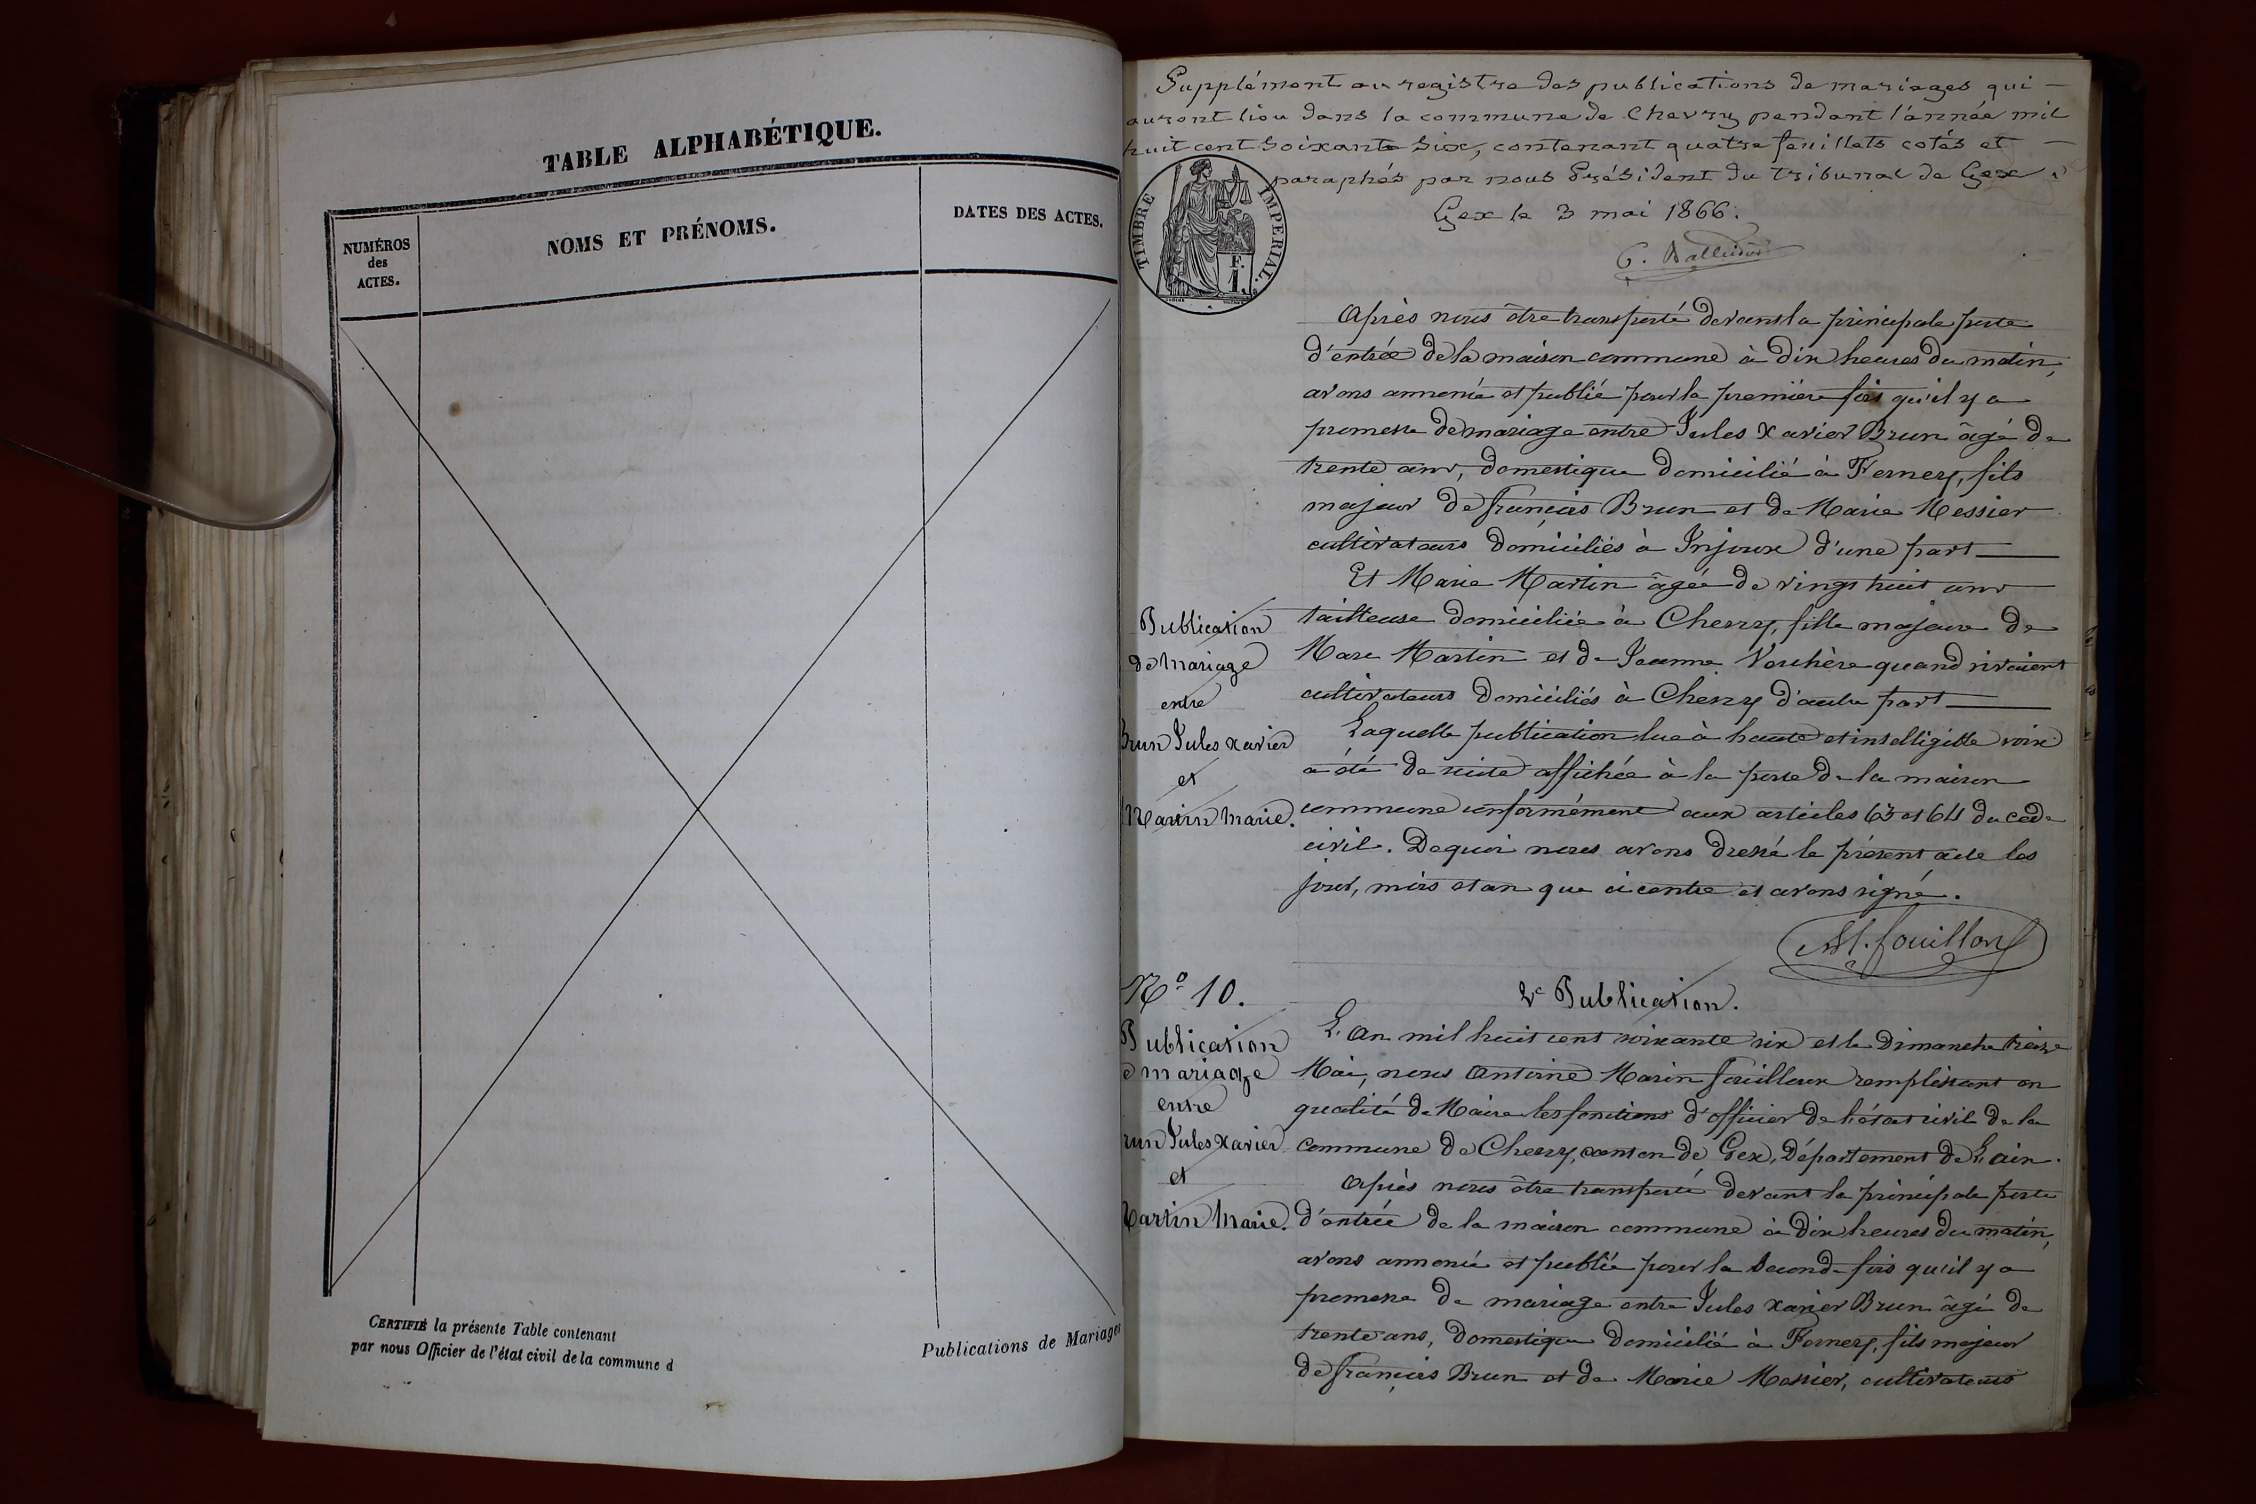 TABLE ALPHABÉTIQUE.
NUMÉROS
des
ACTES.
NOMS ET PRÉNOMS.
DATES DES ACTES.
CERTIFIÉ la présente Table contenant
par nous Officier de l'état civil de la commune d
Publications de Mariages
Supplément au registre des publications de mariages qui
auront lieu dans la commune de Chevry pendant l'année mil
huit cent soixante six, contenant quatre feuillets cotés et
paraphés par nous Président du tribunal de Gex.
Gex le 3 mai 1866.
TIMBRE IMPERIAL.
F.
1.
Après nous être transporté devant la principale porte
d'entrée de la maison commune à dix heures du matin,
avons annoncé et publié pour la première fois qu'il y a
promesse de mariage entre Jules Xavier Brun âgé de
trente ans, domestique domicilié à Ferney, fils
majeur de françois Brun et de Marie Messier
cultivateurs domiciliés à Injoux d'une part
Et Marie Martin âgée de vingt huit ans
tailleuse domiciliée à Chevry, fille majeure de
Marc Martin et de Jeanne Vouchère quand vivaient
cultivateurs domiciliés à Chevry d'autre part
Laquelle publication lue à haute et intelligible voix
a été de suite affichée à la porte de la maison
commune conformément aux articles 63 et 64 du code
civil. De quoi nous avons dressé le présent acte les
jour, mois et an que ci contre et avons signé.
Publication
de Mariage
entre
Brun Jules Xavier
et
Martin Marie.
Nº 10.
2e Publication.
Publication
mariage
entre
Jules Xavier
et
Martin Marie.
L'An mil huit cent soixante six et le Dimanche treize
Mai, nous Antoine Marin fouilloux remplissant en
qualité de Maire les fonctions d'officier de l'état civil de la
commune de Chevry, canton de Gex, Département de L'ain.
Après nous être transporté devant la principale porte
d'entrée de la maison commune à dix heures du matin,
avons annoncé et publié pour la seconde fois qu'il y a
promesse de mariage entre Jules Xavier Brun âgé de
trente ans, domestique domicilié à Ferney, fils majeur
de françois Brun et de Marie Messier, cultivateurs